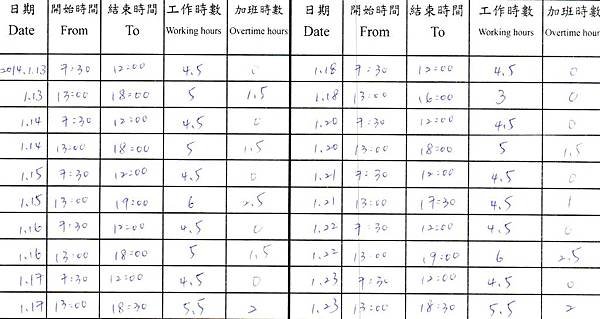 日期 開始時間 結束時間 工作時數 加班時數 日期 開始時間 結束時間 工作時數 加班時數
Date From To Working hours Overtime hours Date From To Working hours Overtime hours
2014.1.13 7:30 12:00 4.5 0 1.18 7:30 12:00 4.5 0
1.13 13:00 18:00 5 1.5 1.18 13:00 16:00 3 0
1.14 7:30 12:00 4.5 0 1.20 7:30 12:00 4.5 0
1.14 13:00 18:00 5 1.5 1.20 13:00 18:00 5 1.5
1.15 7:30 12:00 4.5 0 1.21 7:30 12:00 4.5 0
1.15 13:00 19:00 6 2.5 1.21 13:00 17:30 4.5 1
1.16 7:30 12:00 4.5 0 1.22 7:30 12:00 4.5 0
1.16 13:00 18:00 5 1.5 1.22 13:00 19:00 6 2.5
1.17 7:30 12:00 4.5 0 1.23 7:30 12:00 4.5 0
1.17 13:00 18:30 5.5 2 1.23 13:00 18:30 5.5 2